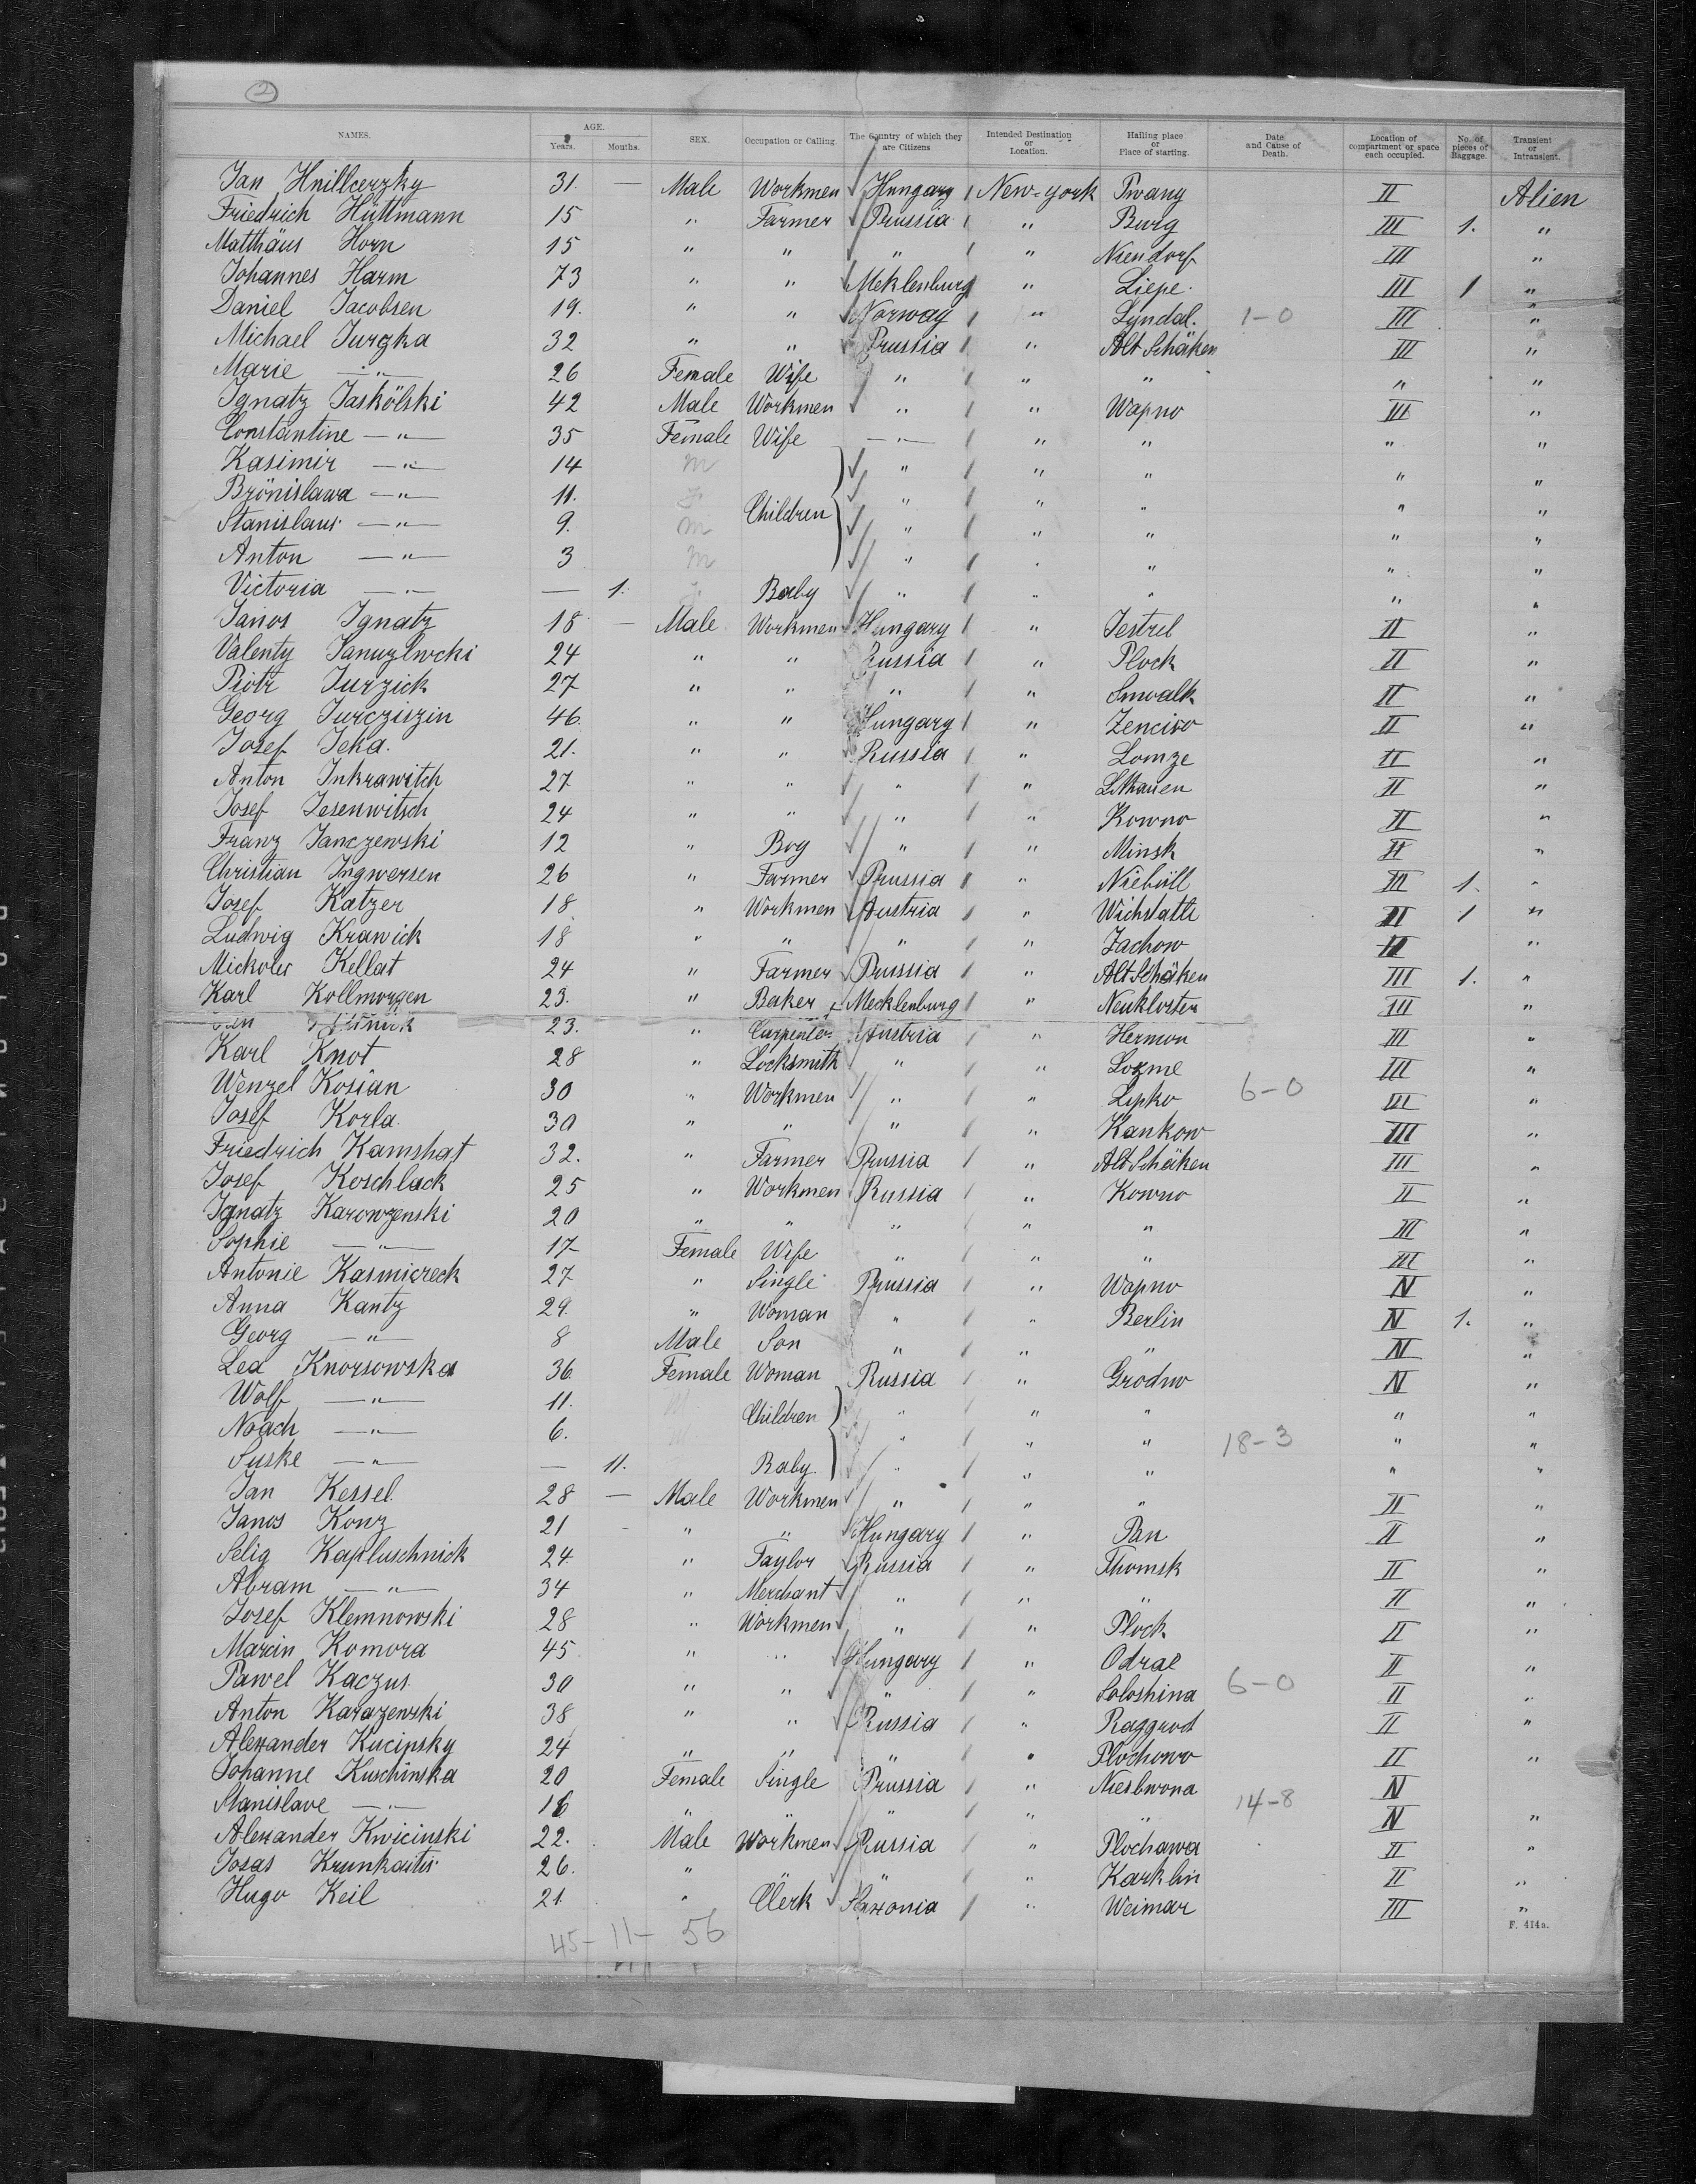 2
NAMES. AGE. Years. Months. SEX. Occupation or Calling. The Country of which they are Citizens Intended Destination or Location. Hailing place or Place of starting. Date and Cause of Death. Location of compartment or space each occupied. No. of pieces of Baggage. Transient or Intransient.
Jan Hnillcerzky 31. — Male Workmen Hungary New-York Pwany II Alien
Friedrich Hüttmann 15 " Farmer Prussia " Burg III 1. "
Matthäus Horn 15 " " " " Niendorf III "
Johannes Harm 73 " " Meklenburg " Liepe. III 1 "
Daniel Jacobsen 19. " " Norway " Lyndal. 1-0 III "
Michael Jurgka 32 " " Prussia " Alt Schäken III "
Marie —"— 26 Female Wife " " " " "
Ignatz Jaskölski 42 Male Workmen " " Wapno III "
Constantine —"— 35 Female Wife —"— " " " "
Kasimir —"— 14 m " " " " "
Brönislawa —"— 11. f Children " " " " "
Stanislaus —"— 9. m " " " " "
Anton —"— 3 m " " " " "
Victoria —"— — 1. f Baby " " " " "
Janos Ignatz 18 — Male Workmen Hungary " Jestrel II "
Valenty Januzlwcki 24 " " Russia " Plock II "
Piotr Jurzick 27 " " " " Suwalk II "
Georg Jurcziszin 46. " " Hungary " Zenciso II "
Josef Jeka. 21. " " Russia " Lomze II "
Anton Inkrawitch 27 " " " " Lithauen II "
Josef Jesenwitsch 24 " " " " Kowno II "
Franz Janczewski 12 " Boy " " Minsk II "
Christian Ingwersen 26 " Farmer Prussia " Niebüll III 1. "
Josef Katzer 18 " Workmen Austria " Wichstattl II 1 "
Ludwig Krawick 18 " " " " Jachow II "
Mickoles Kellat 24 " Farmer Prussia " Alt Schäken III 1. "
Karl Kollmorgen 23. " Baker Mecklenburg " Neukloster III "
23. " Carpenter Austria " Hermon III "
Karl Knot 28 " Locksmith " " Lozme III "
Wenzel Kosian 30 " Workmen " " Lipko 6-0 III "
Josef Korla. 30 " " " " Kankow III "
Friedrich Kamshat 32. " Farmer Prussia " Alt Schäken III "
Josef Koschlack 25 " Workmen Russia " Kowno II "
Ignatz Karowzenski 20 " " " " " III "
Sophie —"— 17 Female Wife " " " III "
Antonie Kasmiereck 27 " Single Prussia " Wapno IV "
Anna Kantz 29. " Woman " " Berlin IV 1. "
Georg —"— 8 Male Son " " " IV "
Lea Knorsowska 36 Female Woman Russia " Grodno IV "
Wolf —"— 11. Children " " " " "
Noach —"— 6. " " " 18-3 " "
Suske —"— — 11. Baby. " " " " "
Jan Kessel. 28 — Male Workmen " " " II "
Janos Konz 21 - " " Hungary " Pan II "
Selig Kapluschnick 24 " Taylor Russia " Thomsk II "
Abram —"— 34 " Merchant " " " II "
Josef Klemnowski 28 " Workmen " " Plock II "
Marcin Komora 45 " " Hungary " Odrae II "
Pawel Kaczus. 30 " " " " Soloshina 6-0 II "
Anton Karazewski 38 " " Russia " Raggrod II "
Alexander Kucipsky 24 " " " " Plochowo II "
Johanne Kuschinska 20 Female Single Prussia " Niesbwona IV
Stanislave —"— 16 " " " " 14-8 IV "
Alexander Kwicinski 22. Male Workmen Russia " Plochawa II "
Josas Krunkaitis 26. " " Karklin II "
Hugo Keil 21. " Clerk Saxonia " Weimar III "
F. 414a.
45- 11- 56